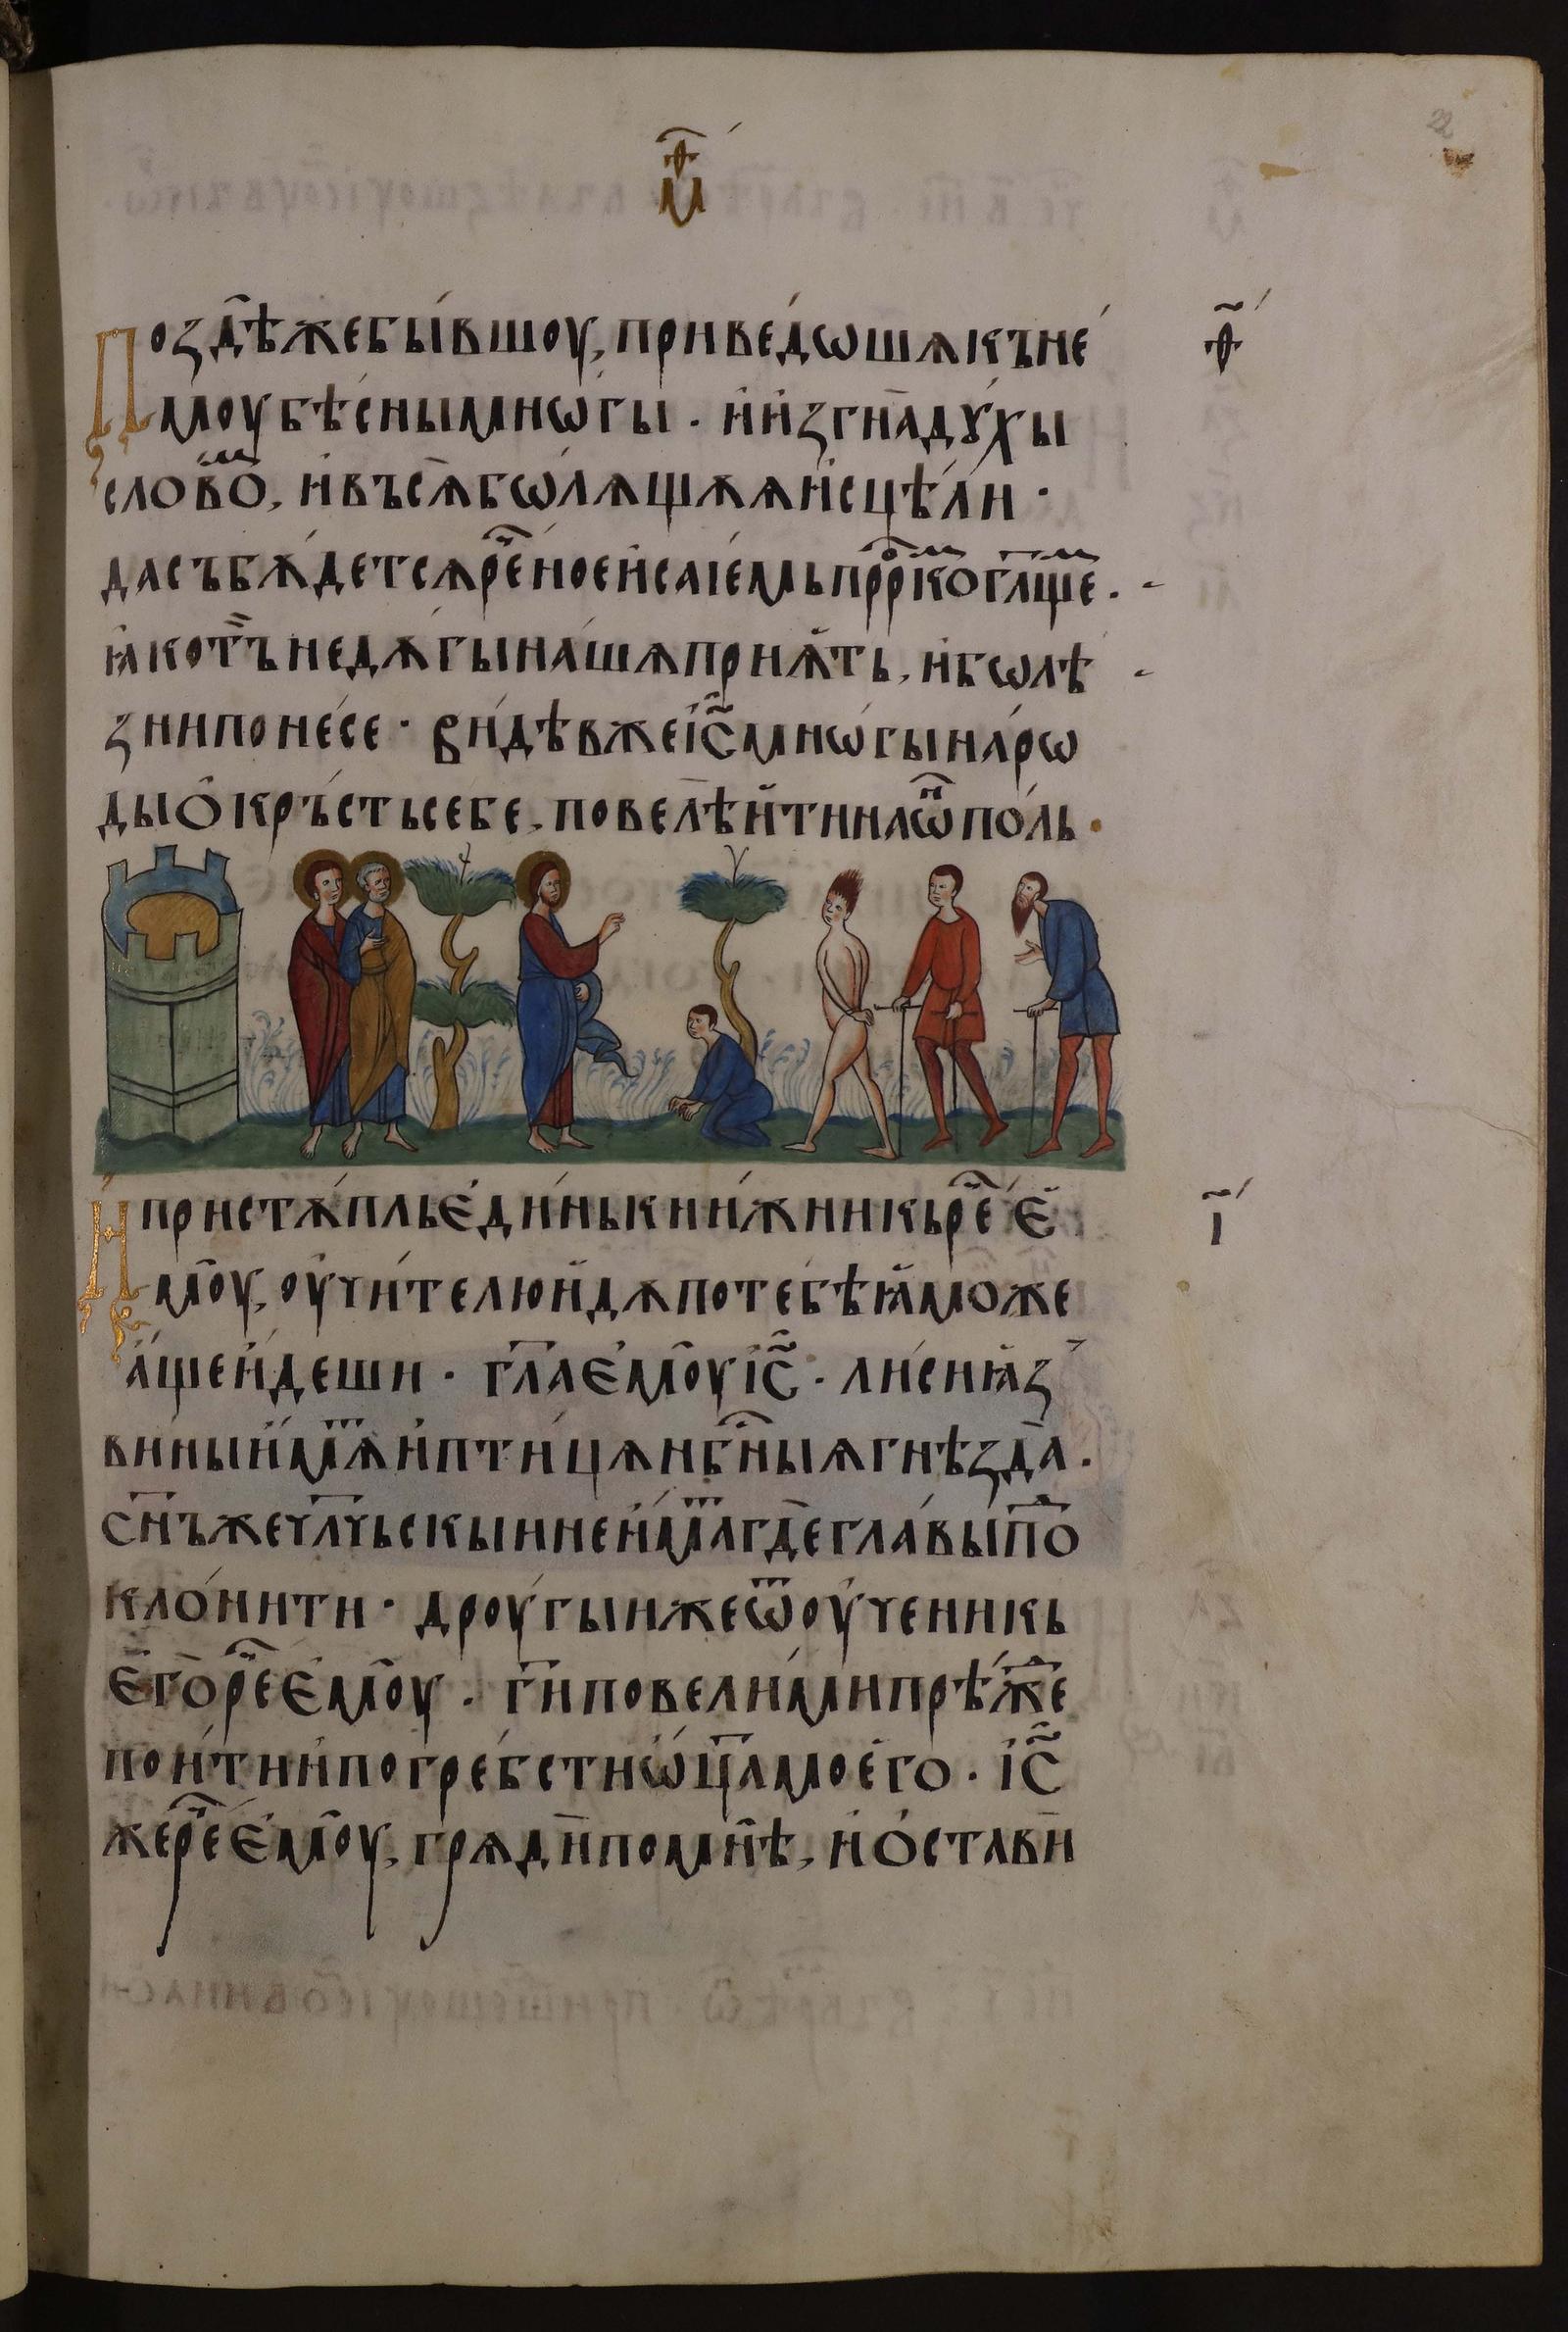 м҃ф
22
Позд̑ѣжебы́вшоу, приве́дѡшѧкъне́
моубѣ́сныимнѡ́гы · и҆и҆згна̀дꙋ́хы
сло́вомъ, и҆въсѧ̀бѡ́лѧщѫѧи҆сцѣ́ли ·
дасъбѫ́детсѧрⷱ҇е́ноеи҆саі́емьпррⷪ҇комъгл҃щем ·
ꙗ҆котъ̏недѫ́гына́шѧприѧ́ть, и҆бѡлѣ
зниипоне́се · ви́дѣвжеі҆с҃мнѡ́гынарѡ́
дыо҆кръ́стьсебе, повелѣ̀и҆́тинаѡ҆нⸯпо́ль ·
И҆пристѫ́пльє҆ди́нькни́жникьрⷱ҇еє҆
моу̀, оу҆чи́телюи҆́дѫпотебѣ̀ꙗ҆́може
а́щеи҆́деши · гл҃ає҆моу̀і҆с҃ · ли́сиꙗ҆́з
ви́ныи҆́мѫⷮи҆пти́цѧнбⷭ҇ныѧгнѣзда̀ ·
сн҃ъжечл҃чьскыинеи҆́маⷮгдѐглавы́по
кло́нити · дроу́гыижеѿоу҆ченикь
є҆го̀рⷱ҇еє҆моу̀ · ги҃повели́мипрѣ́жⷣе
пои҆́тиипогре́бстиѡ҆ц҃амоего̀ · і҆с҃
жерⷱ҇еє҆моу̀, грѧдѝпомнѣ̀, и҆ѻ҆ставѝ
ф҃
і҃